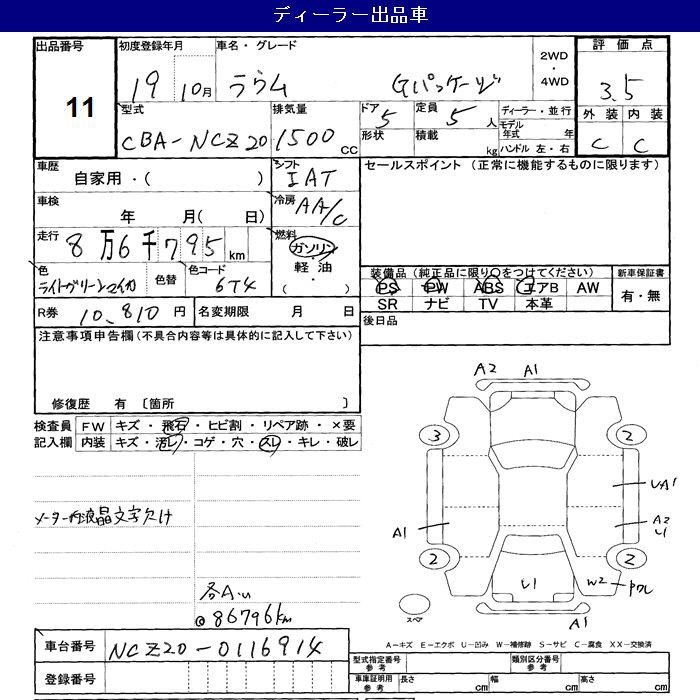 ディーラー出品車
出品番号 初度登録年月 車名・グレード 2WD・4WD 評価点
11 19 10月 ラウム Gパッケージ 3.5
型式 排気量 ドア 定員 ディーラー・並行 外装 内装
CBA-NCZ20 1500cc 5 5人 モデル年式 年 C C
形状 積載 kg ハンドル 左・右
車歴 シフト セールスポイント(正常に機能するものに限ります)
自家用・( ) IAT
車検 冷房
年 月( 日) AA/C
走行 燃料
8万6千795km ガソリン
軽油
・
( )
色 色替 色コード
ライトグリーンマイカ 6T4
装備品(純正品に限り○をつけてください) 新車保証書
PS PW ABS エアB AW 有・無
SR ナビ TV 本革
R券 10,810円 名変期限 月 日
後日品
注意事項申告欄(不具合内容等は具体的に記入して下さい)
修復歴 有 〔箇所 〕
検査員 FW キズ・飛石・ヒビ割・リペア跡・×要
記入欄 内装 キズ・汚レ・コゲ・穴・スレ・キレ・破レ
メーター内液晶文字欠け
各A.U
@86796km
A2 A1
3 2
UA1
A1 A2
U1
2 2
U1 W2
スペア
A1
A-キズ E-エクボ U-凹み W-補修跡 S-サビ C-腐食 XX-交換済
車台番号 NCZ20-0116914
登録番号
型式指定番号 参考 類別区分番号 参考
車庫証明用 参考 長さ cm 幅 cm 高さ cm